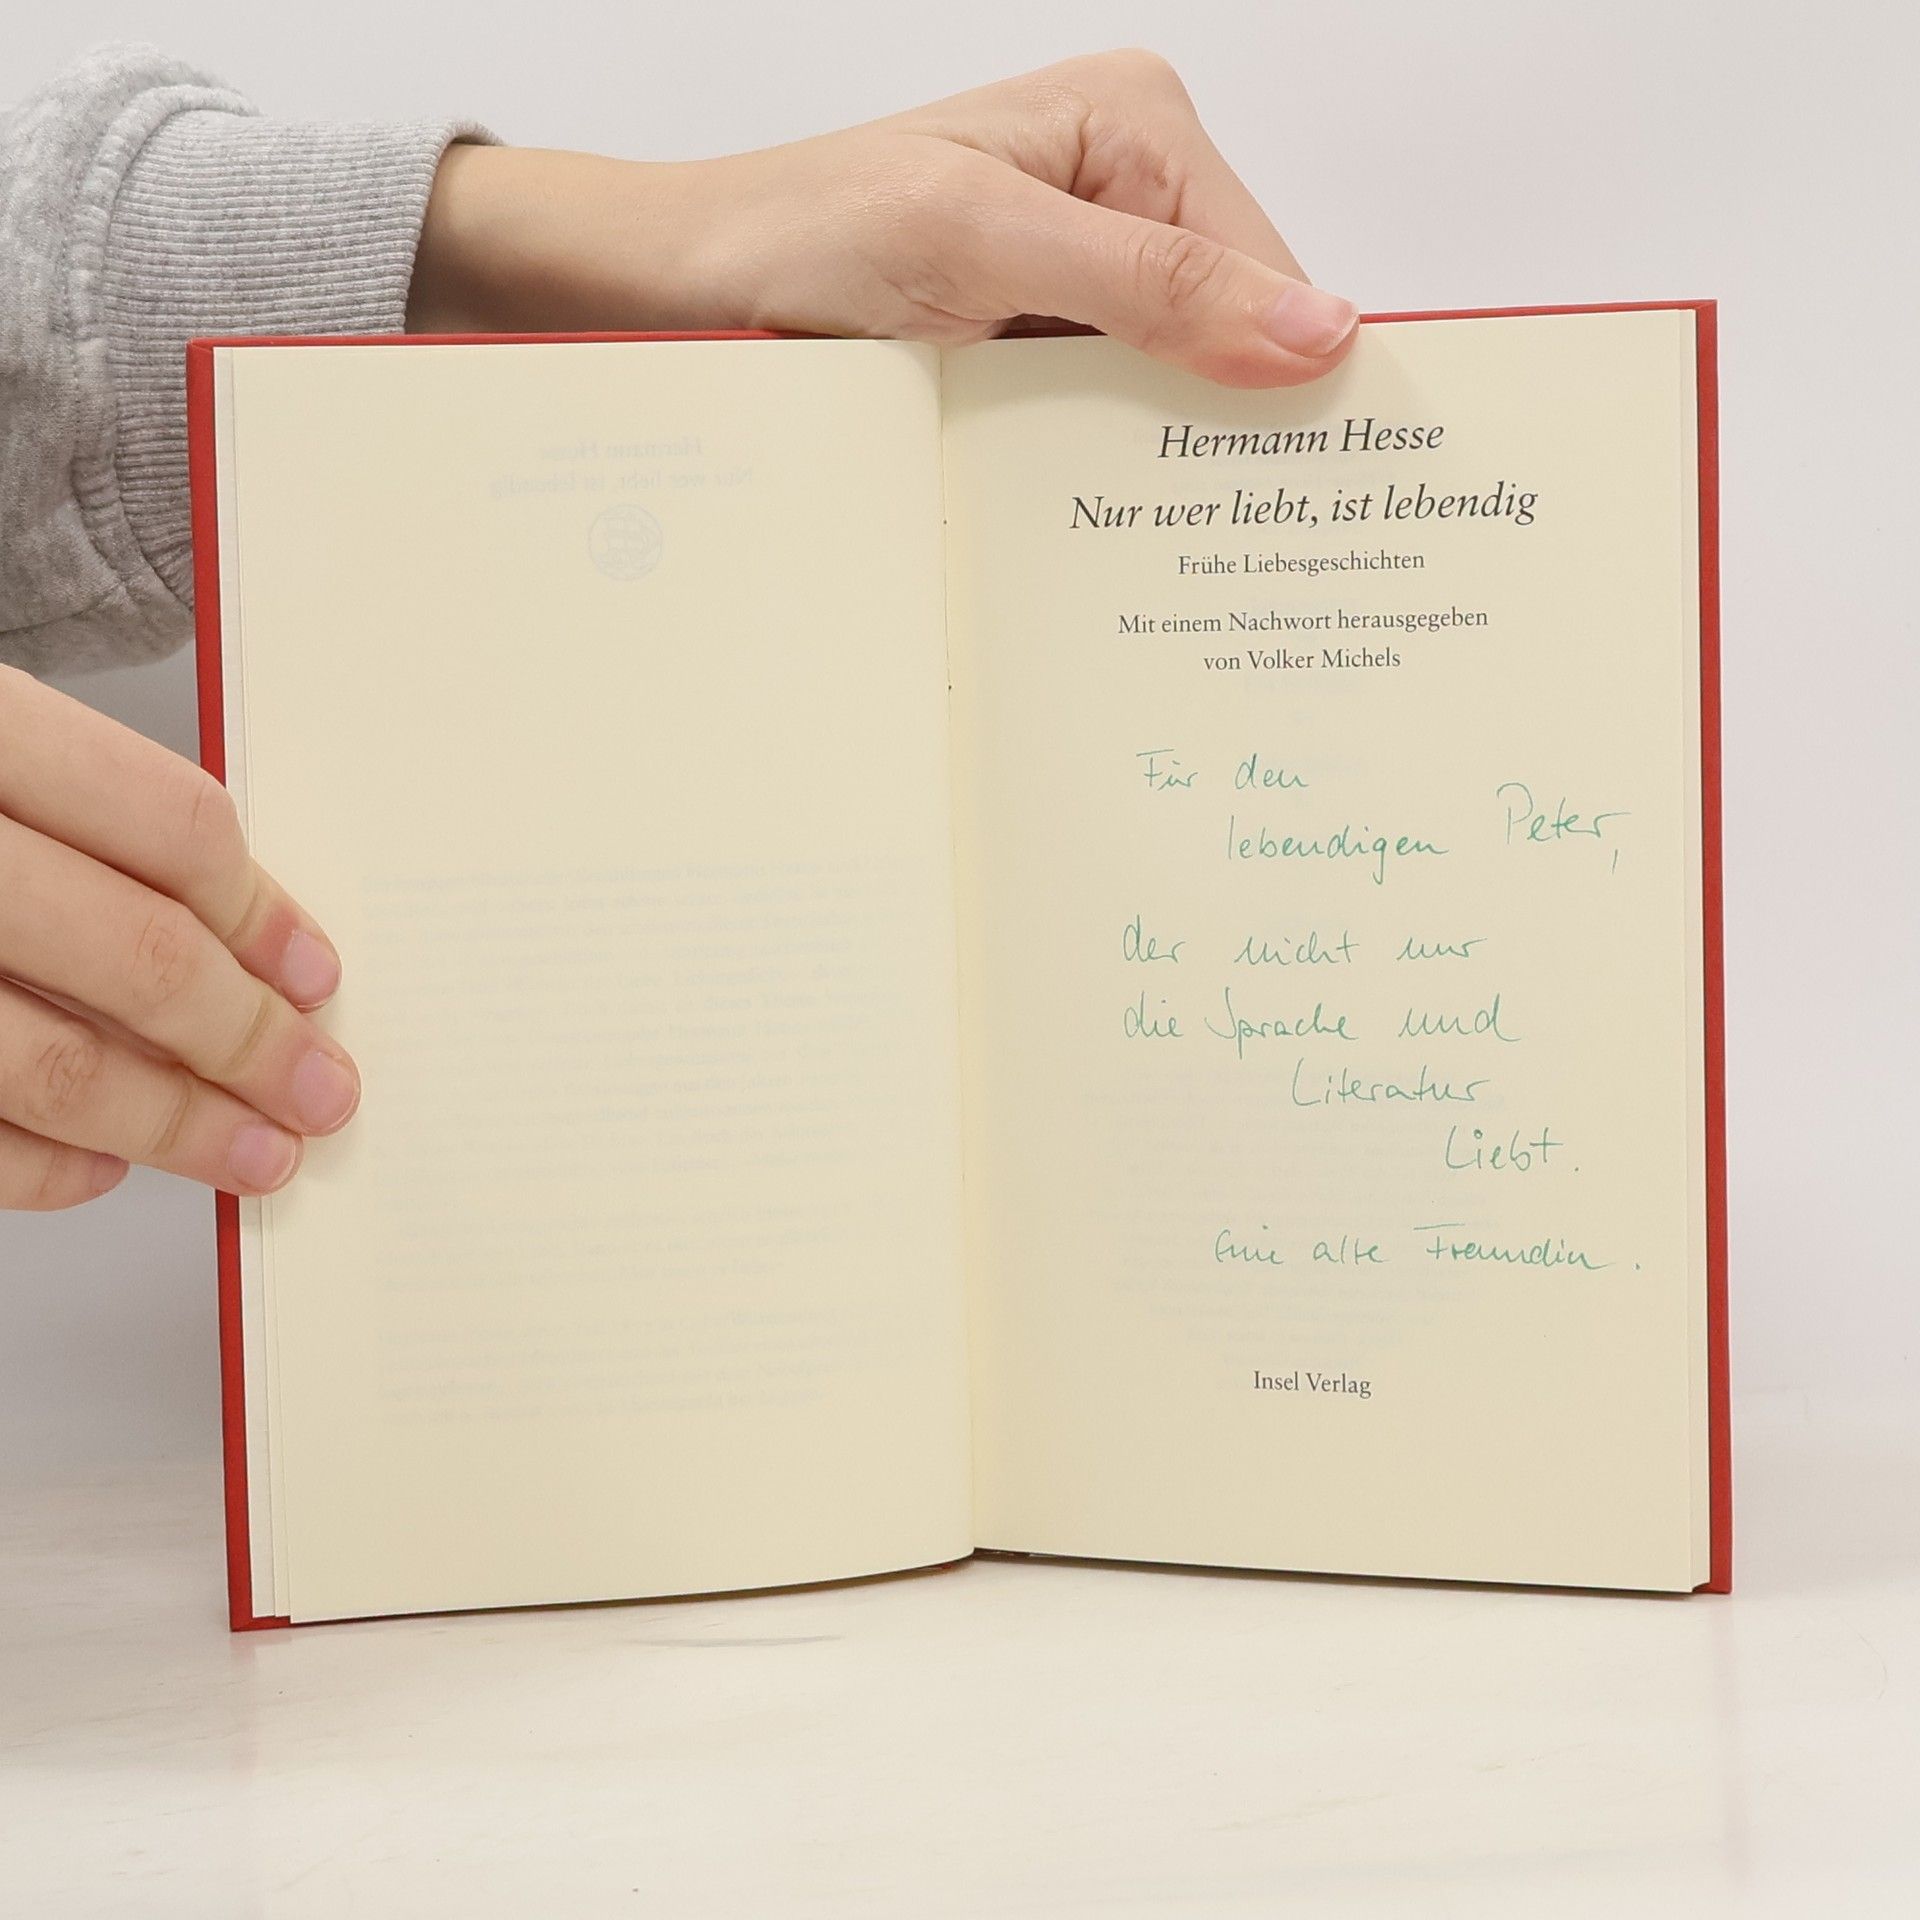 Hermann Hesse
Nur wer liebt, ist lebendig
Frühe Liebesgeschichten
Mit einem Nachwort herausgegeben
von Volker Michels
Für den
lebendigen Peter,
der nicht nur
die Sprache und
Literatur
Liebt.
Eine alte Freundin.
Insel Verlag